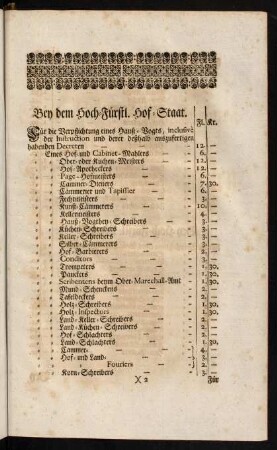 Bey dem Hoch-Fürstl. Hof-Staat.
Fl. Kr.
Für die Verpflichtung eines Hauß-Vogts, inclusivè
der Instruction und derer deßhalb auszufertigen
habenden Decreten — 12. —
Eines Hof- und Cabinet-Mahlers — 6. —
Ober- oder Kuchen-Meisters — 12. —
Hof-Apotheckers — 12. —
Page-Hofmeisters — 6. —
Cammer-Dieners — 7. 30.
Cämmerer und Tapissier — 6. —
Fechtmeisters — 3. —
Kunst-Cämmerers — 10. —
Kellermeisters — 4. —
Hauß-Vogthey-Schreibers — 3. —
Küchen-Schreibers — 3. —
Keller-Schreibers — 3. —
Silber-Cämmerers — 3. —
Hof-Barbierers — 2. —
Conditors — 3. —
Trompeters — 1. 30.
Pauckers — 1. 30.
Scribentens beym Ober-Marechall-Amt — 1. 30.
Mund-Schenckens — 2. —
Tafeldeckers — 2. —
Holtz-Schreibers — 1. 30.
Holtz-Inspectors — 1. 30.
Land-Keller-Schreibers — 2. —
Land-Küchen-Schreibers — 2. —
Hof-Schlachters — 2. —
Land-Schlachters — 1. 30.
Cammer- — 4. —
Hof- und Land- — 3. —
Fouriers — 2. —
Korn-Schreibers — 3. —
X 2
Für